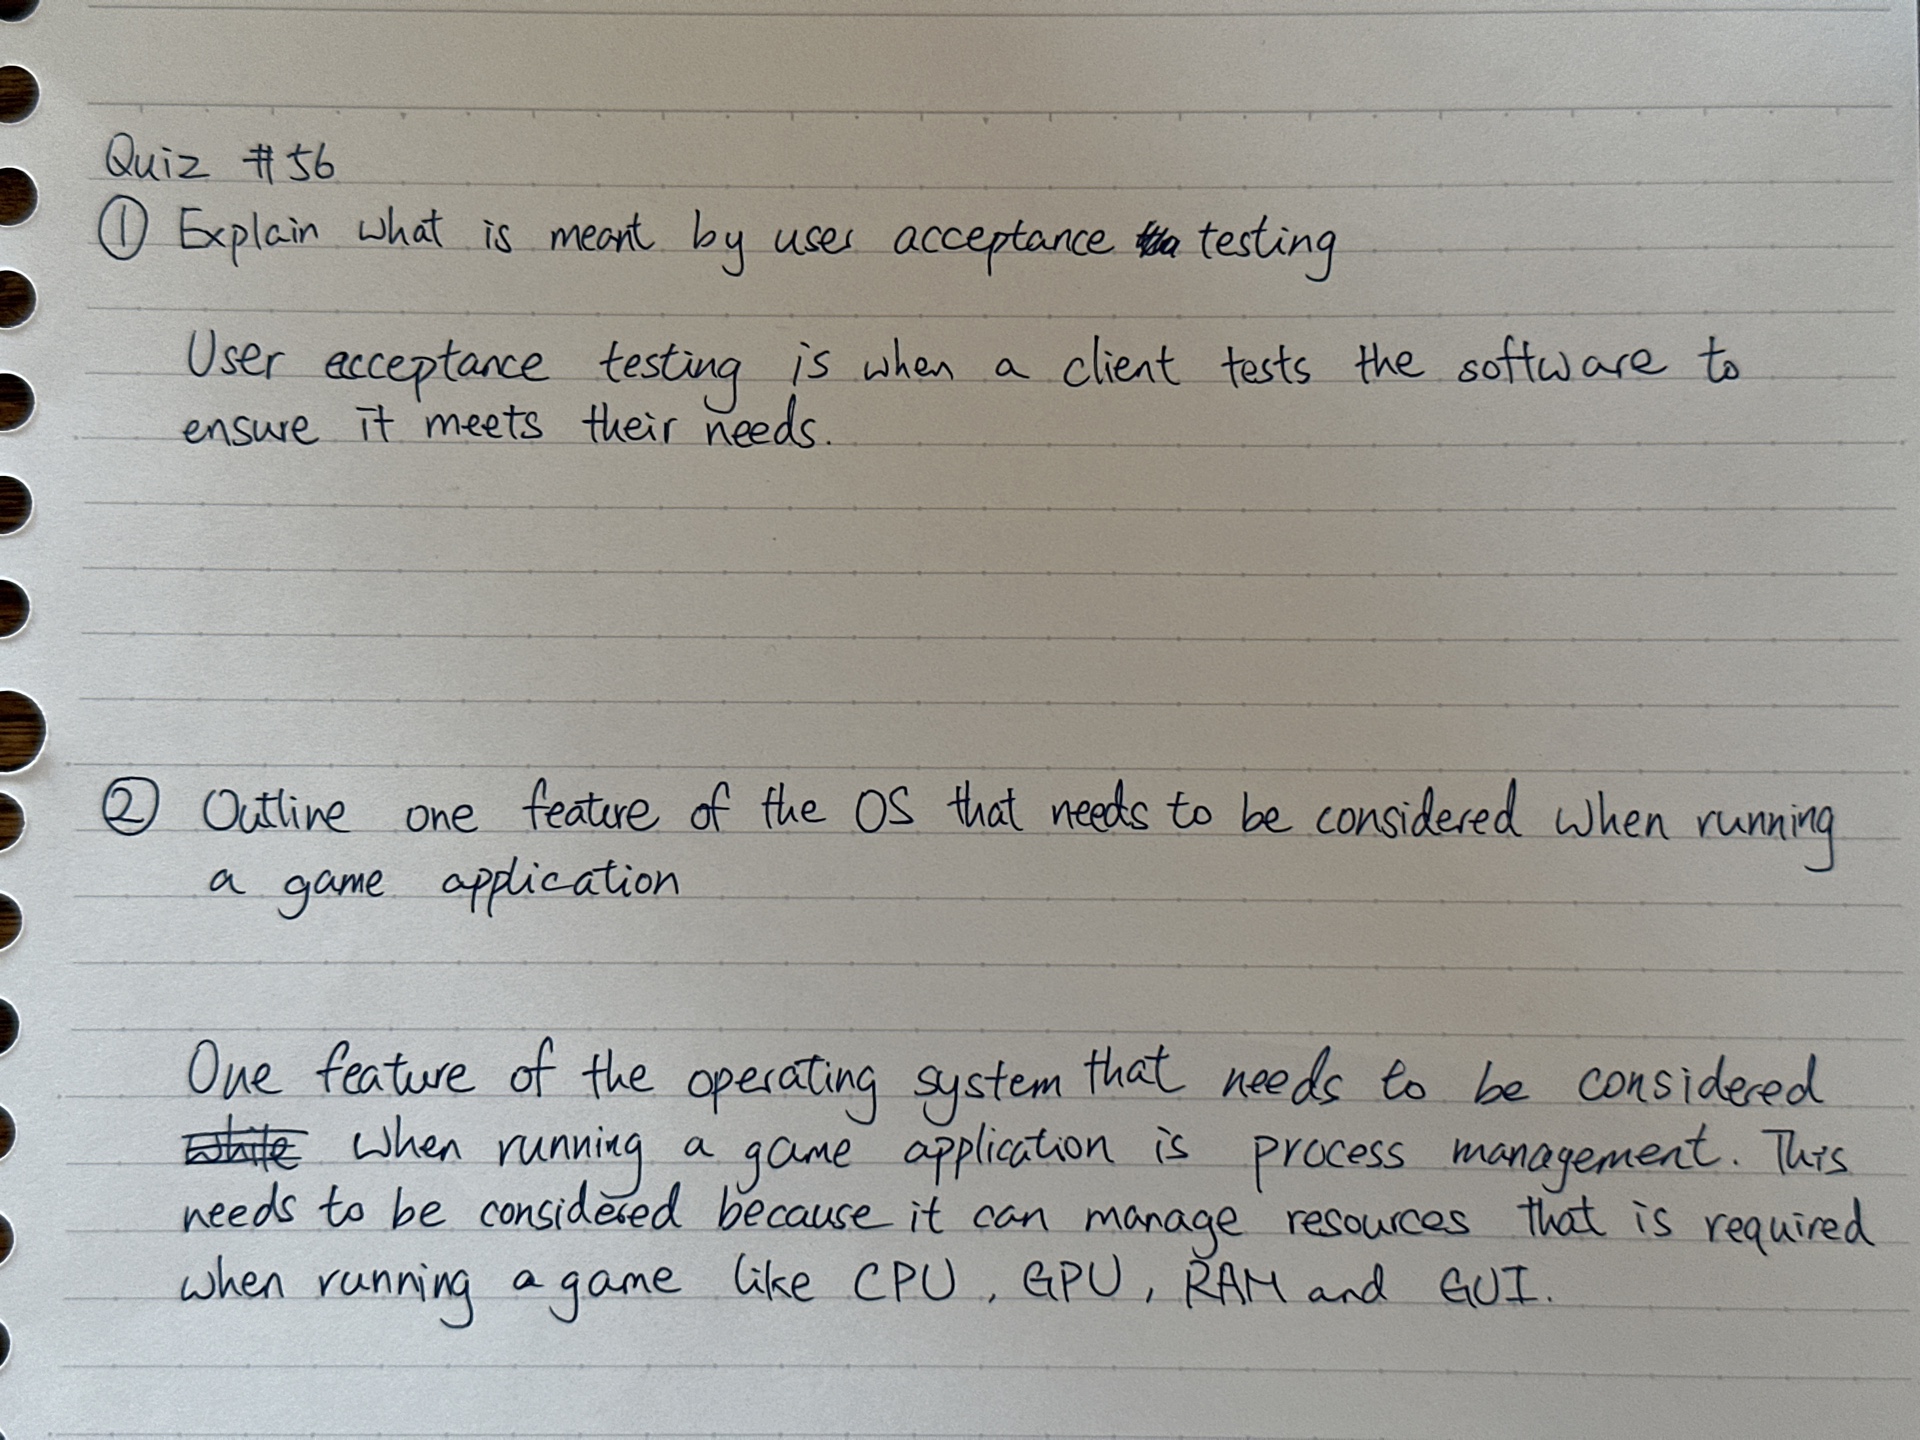 Quiz #56
① Explain what is meant by user acceptance testing
User acceptance testing is when a client tests the software to
ensure it meets their needs.
② Outline one feature of the OS that needs to be considered when running
a game application
One feature of the operating system that needs to be considered
while when running a game application is process management. This
needs to be considered because it can manage resources that is required
when running a game like CPU, GPU, RAM and GUI.